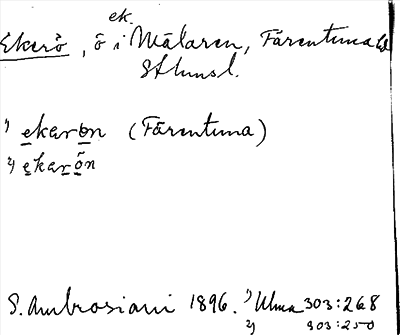 ek.
Ekerö, ö i Mälaren, Färentuna hd
Sthmsl.
1) ekaron (Färentuna)
2) ekarön
S. Ambrosiani 1896. 1) Ulma 303:268
2) 303:250